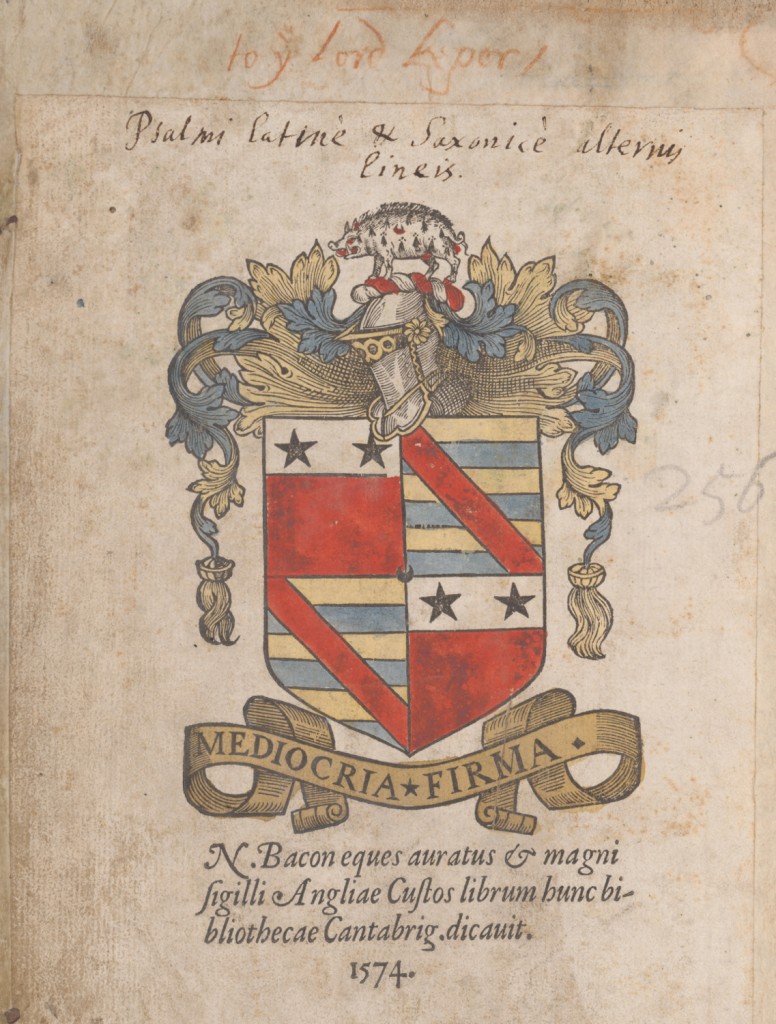 to yͤ Lord keper
Psalmi latinè & Saxonicè alternis
lineis.
256
MEDIOCRIA★FIRMA.
N. Bacon eques auratus & magni
ſigilli Angliae Cuſtos librum hunc bi-
bliothecae Cantabrig. dicauit.
1574.